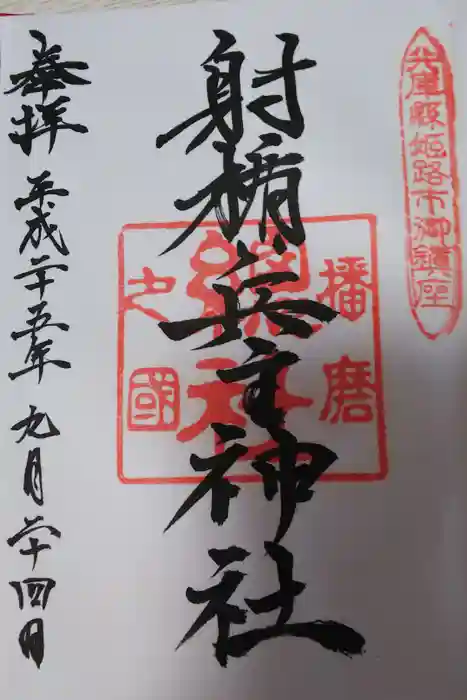 兵庫縣姫路市御鎮座
射楯兵主神社
播磨
之國
總社
奉拝 平成二十五年 九月二十四日